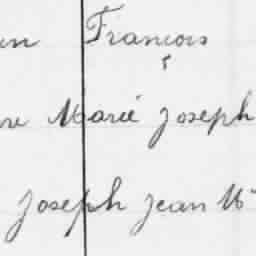 François
Marie Joseph
Joseph Jean M